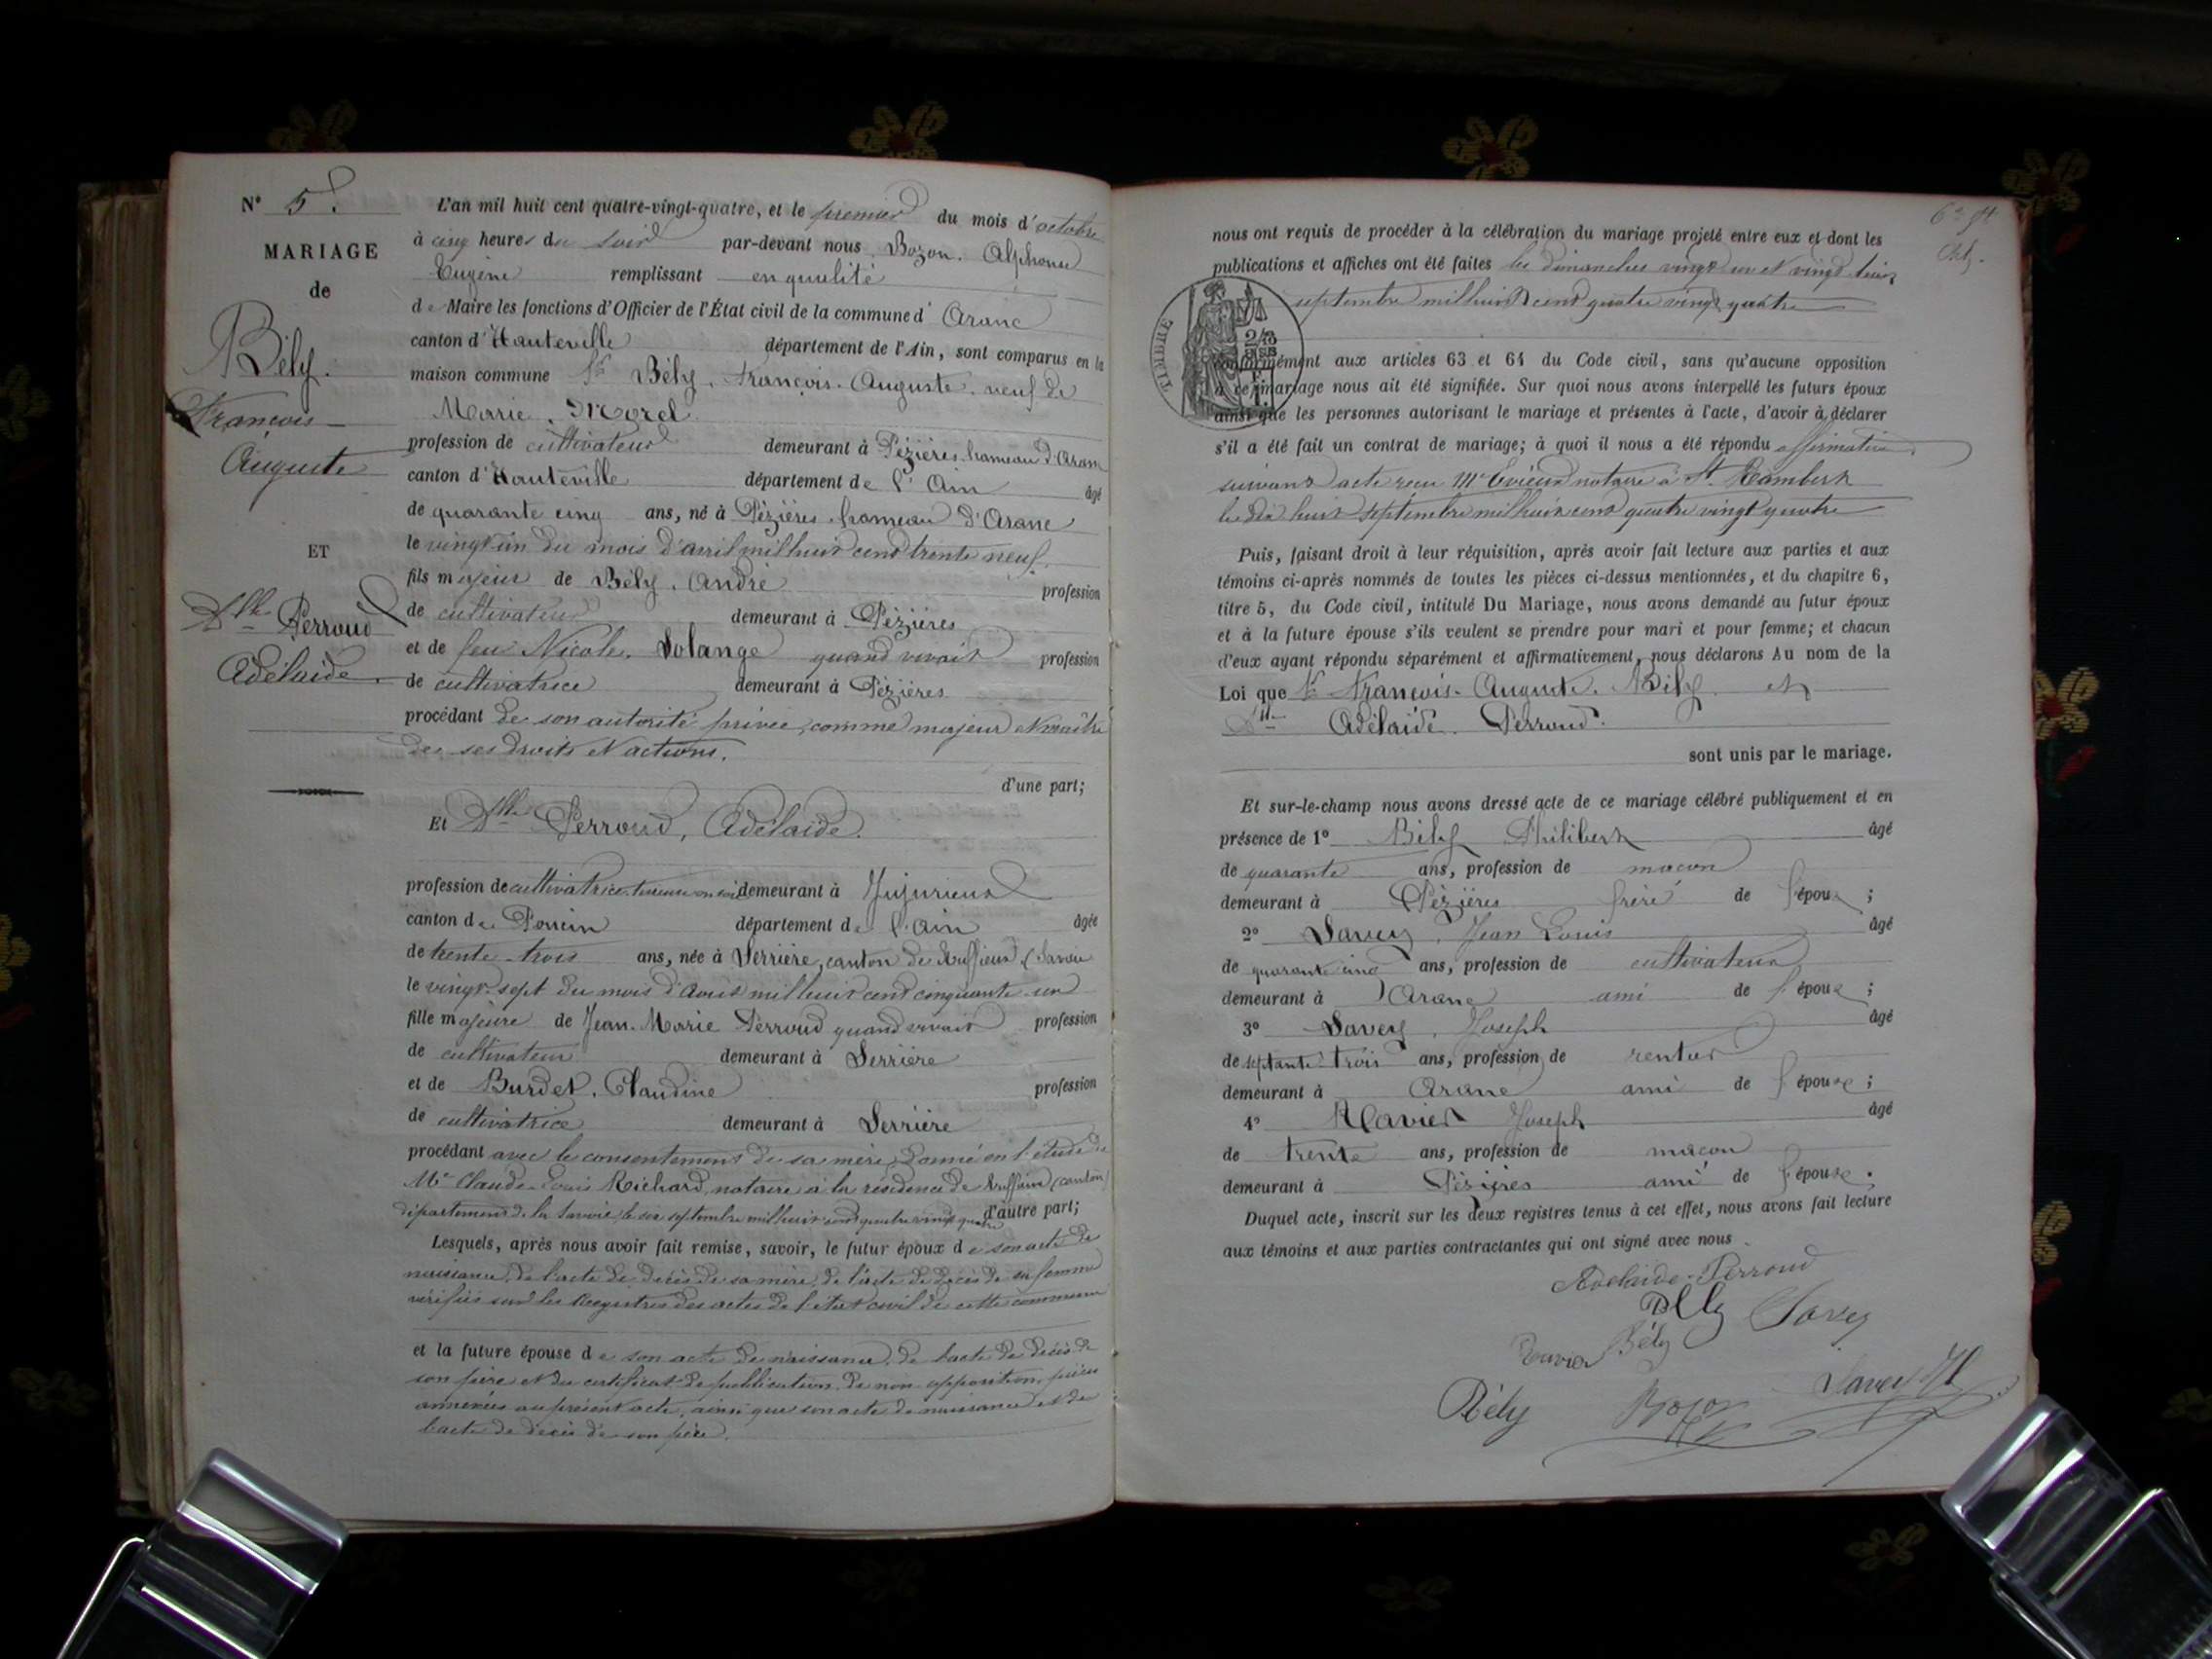 N° 5.
MARIAGE
de
Bély.
François
Auguste
ET
Dlle Perroud
Adélaïde
L'an mil huit cent quatre-vingt-quatre, et le premier du mois d'octobre
à cinq heures du soir par-devant nous Bozon. Alphonse
Eugène remplissant en qualité
de Maire les fonctions d'Officier de l'État civil de la commune d'Aranc
canton d'Hauteville département de l'Ain, sont comparus en la
maison commune Sr Bély, François. Auguste. veuf de
Marie. Morel.
profession de cultivateur demeurant à Pézières hameau d'Aranc
canton d'Hauteville département de l'Ain âgé
de quarante cinq ans, né à Pézières. hameau d'Aranc
le vingt un du mois d'avril mil huit cent trente neuf.
fils majeur de Bély. André profession
de cultivateur demeurant à Pézières
et de feu Nicole. Solange quand vivait profession
de cultivatrice demeurant à Pézières
procédant de son autorité privée, comme majeur et maître
de ses droits et actions.
d'une part;
Et Dlle Perroud, Adélaïde.
profession de cultivatrice demeurant à Jujurieux
canton de Poncin département de l'Ain âgée
de trente-trois ans, née à Serrière, canton de Ruffieux (Savoie
le vingt-sept du mois d'Août mil huit cent cinquante-un
fille majeure de Jean-Marie Perroud quand vivait profession
de cultivateur demeurant à Serrière
et de Burdet. Claudine profession
de cultivatrice demeurant à Serrière
procédant avec le consentement de sa mère, donné en l'étude de
Me Claude-Louis Richard, notaire à la résidence de Ruffieux (canton)
département de la Savoie, le six septembre mil huit cent quatre vingt quatre d'autre part;
Lesquels, après nous avoir fait remise, savoir, le futur époux de son acte de
naissance, de l'acte de décès de sa mère, de l'acte de décès de sa femme
vérifiés sur les Registres des actes de l'état civil de cette commune
et la future épouse de son acte de naissance, de l'acte de décès de
son père et du certificat de publication de non-opposition, pièces
annexées au présent acte, ainsi que son acte de naissance et de
l'acte de décès de son père.
nous ont requis de procéder à la célébration du mariage projeté entre eux et dont les
publications et affiches ont été faites les dimanches vingt un et vingt huit
septembre mil huit cent quatre vingt quatre
TIMBRE
conformément aux articles 63 et 64 du Code civil, sans qu'aucune opposition
à ce mariage nous ait été signifiée. Sur quoi nous avons interpellé les futurs époux
ainsi que les personnes autorisant le mariage et présentes à l'acte, d'avoir à déclarer
s'il a été fait un contrat de mariage; à quoi il nous a été répondu
suivant acte reçu Me notaire à St. Rambert
le dix huit septembre mil huit cent quatre vingt quatre
Puis, faisant droit à leur réquisition, après avoir fait lecture aux parties et aux
témoins ci-après nommés de toutes les pièces ci-dessus mentionnées, et du chapitre 6,
titre 5, du Code civil, intitulé Du Mariage, nous avons demandé au futur époux
et à la future épouse s'ils veulent se prendre pour mari et pour femme; et chacun
d'eux ayant répondu séparément et affirmativement, nous déclarons Au nom de la
Loi que Sr François. Auguste. Bély et
Dlle Adélaïde. Perroud.
sont unis par le mariage.
Et sur-le-champ nous avons dressé acte de ce mariage célébré publiquement et en
présence de 1° Bély Philibert âgé
de quarante ans, profession de maçon
demeurant à Pézières frère de l'époux ;
2° Savey, Jean Louis âgé
de quarante cinq ans, profession de cultivateur
demeurant à Aranc ami de l'époux ;
3° Savey, Joseph âgé
de septante-trois ans, profession de rentier
demeurant à Aranc ami de l'épouse ;
4° Joseph âgé
de trente ans, profession de maçon
demeurant à Pézières ami de l'épouse .
Duquel acte, inscrit sur les deux registres tenus à cet effet, nous avons fait lecture
aux témoins et aux parties contractantes qui ont signé avec nous .
Adélaide. Perroud
Bély Savey
Bély
Bély Bozon Savey